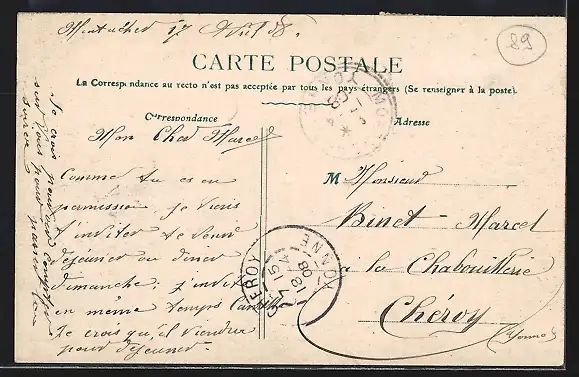 Montacher 17 Avril 08.
89
CARTE POSTALE
La Correspondance au recto n'est pas acceptée par tous les pays étrangers (Se renseigner à la poste).
Correspondance
Adresse
Mon Cher Marcel
Comme tu es en
permission je viens
t'inviter de venir
déjeuner ou diner
dimanche; j'invite
en même temps
Je crois qu'il viendra
pour déjeuner
Je crois pouvoir compter
sur vous pour passer
soirée
M Monsieur
Binet-Marcel
a la Chabouillerie
Chéroy
(Yonne)
CHEROY
YONNE
15
18/4
08